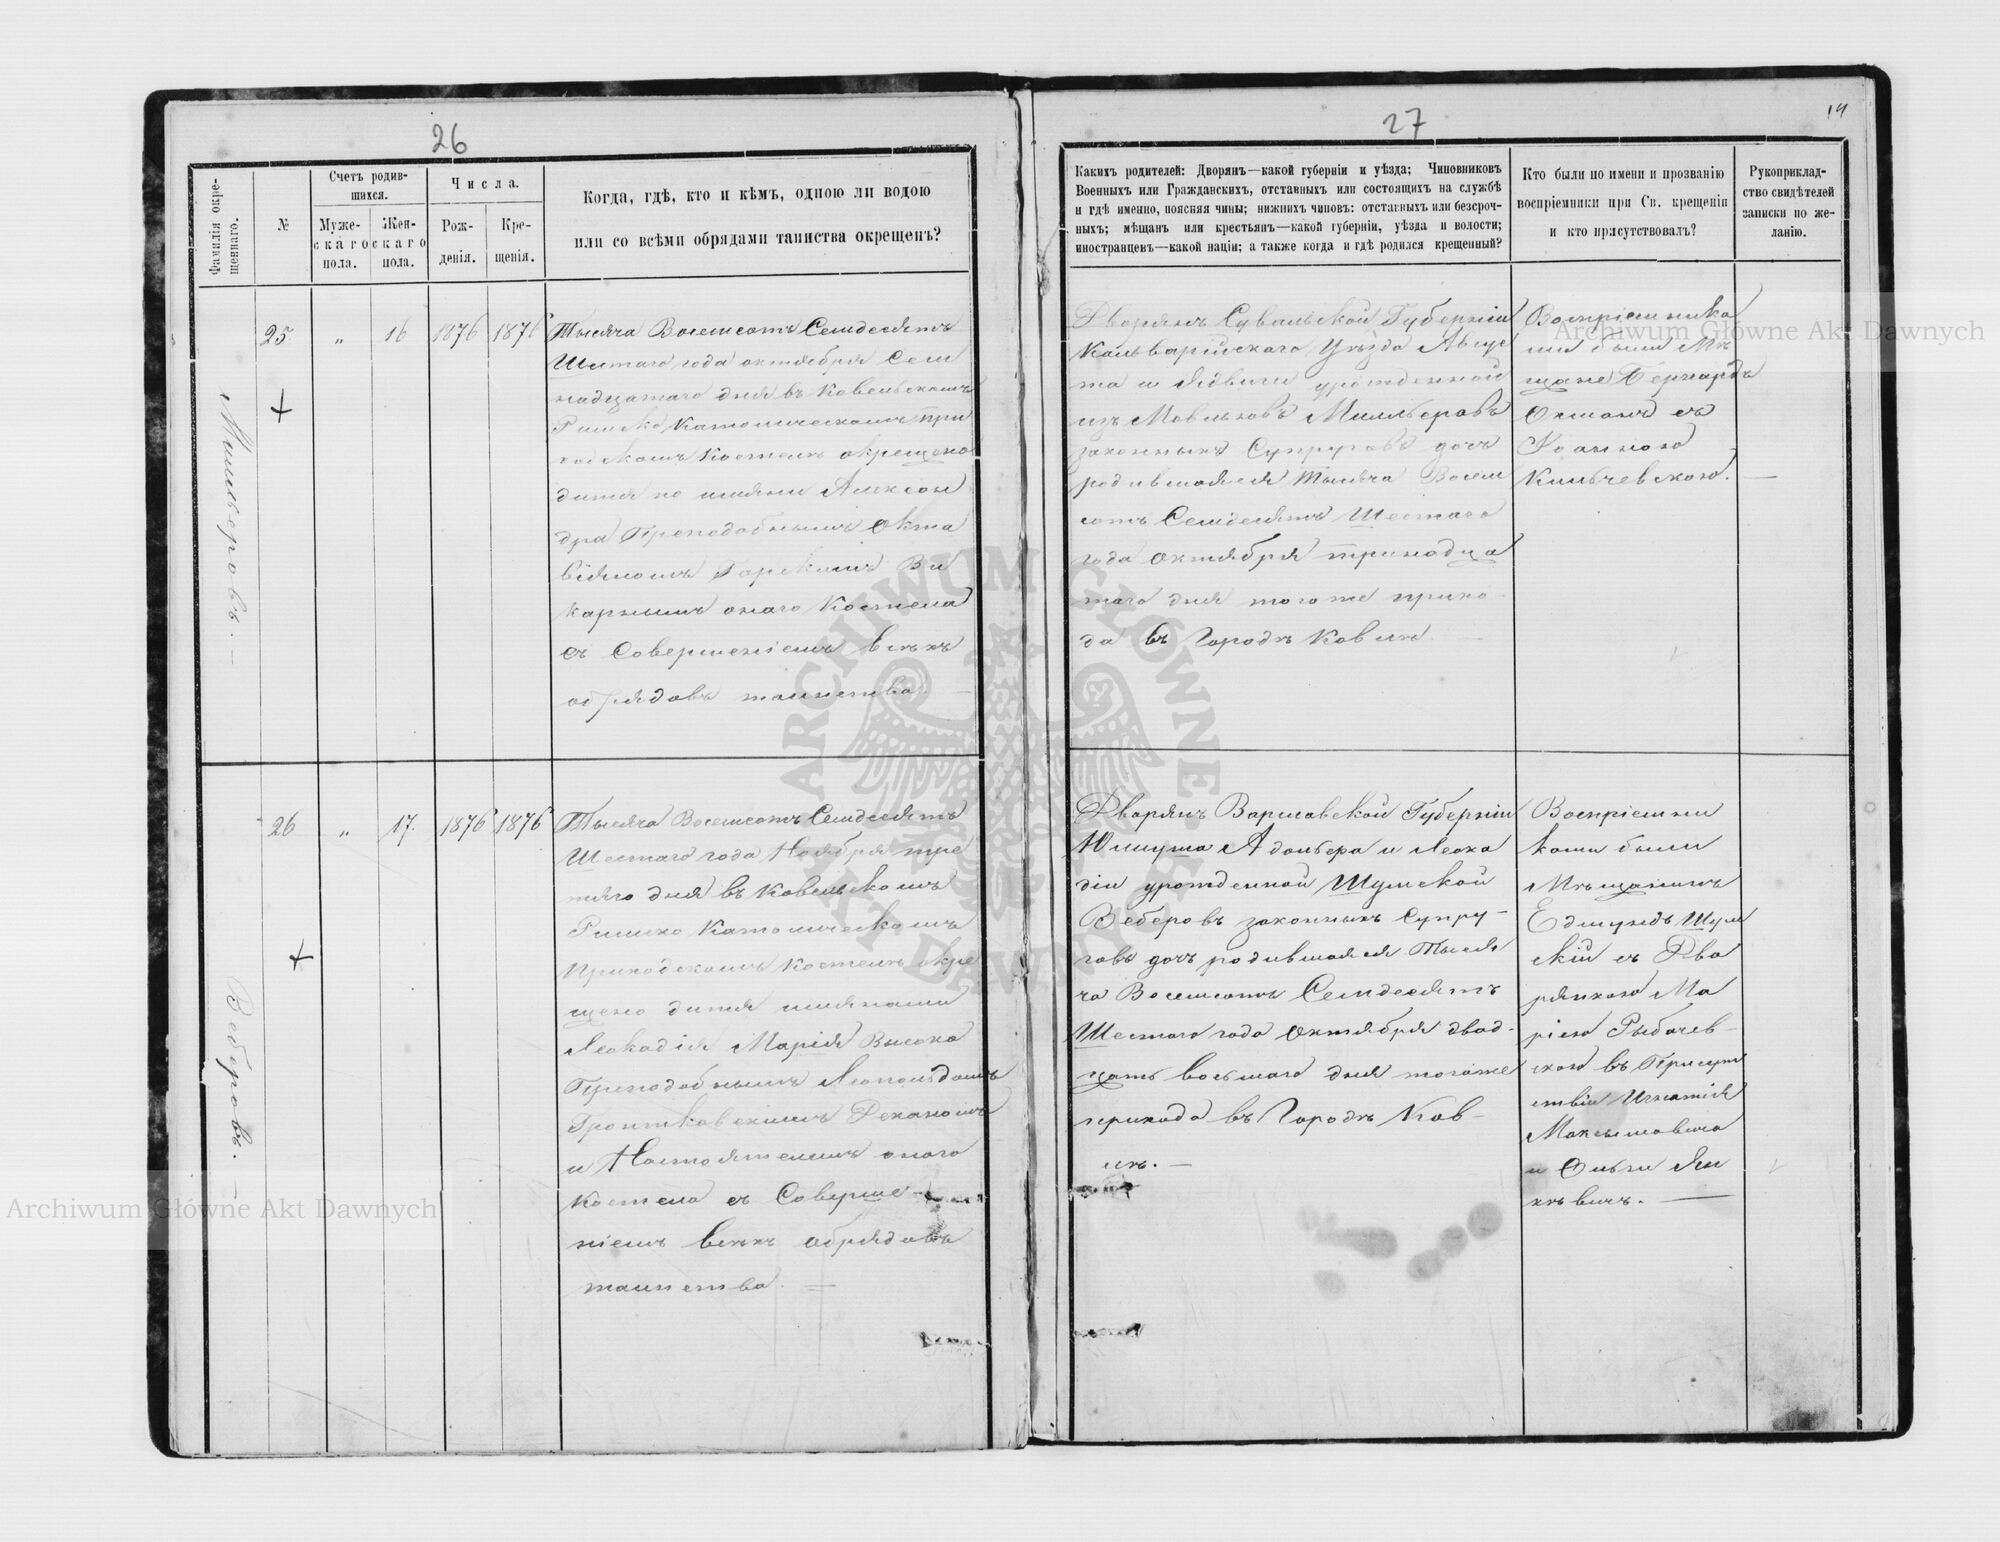 26
Фамилія окре-
щеннаго.
№
Счетъ родив-
шихся.
Муже-
скаго
пола.
Жен-
скаго
пола.
Числа.
Рож-
денія.
Кре-
щенія.
Когда, гдѣ, кто и кѣмъ, одною ли водою
или со всѣми обрядами таинства окрещенъ?
Миллеровъ. —
25
„
16
1876
1876
Тысяча Восемсотъ Семдесятъ
Шестаго года октября Сем
надцатаго дня въ Ковельскомъ
Римско Католическомъ при
ходскомъ Костелѣ окрещено
дитя по имяни Алексан
дра Преподобнымъ Окта
віяномъ Горскимъ Ви
карнымъ онаго Костела
съ Совершеніемъ всѣхъ
обрядовъ таинства. —
Веберовъ. —
26
„
17.
1876
1876
Тысяча Восемсотъ Семдесятъ
Шестаго года Ноября тре
тяго дня въ Ковельскомъ
Римско Католическомъ
Приходскомъ Костелѣ окре
щено дитя имянами
Леокадія Марія Высоко
Преподобнымъ Леопольдомъ
Деканомъ
и Настоятелемъ онаго
Костела съ Соверше-
ніемъ всѣхъ обрядовъ
таинства. —
27
14
Какихъ родителей: Дворянъ—какой губерніи и уѣзда; Чиновниковъ
Военныхъ или Гражданскихъ, отставныхъ или состоящихъ на службѣ
и гдѣ именно, поясняя чины; нижнихъ чиновъ: отставныхъ или безсроч-
ныхъ; мѣщанъ или крестьянъ—какой губерніи, уѣзда и волости;
иностранцевъ—какой націи; а также когда и гдѣ родился крещенный?
Кто были по имени и прозванію
воспріемники при Св. крещеніи
и кто присутствовалъ?
Рукоприклад-
ство свидѣтелей
записки по же-
ланію.
Дворянъ Сувальской Губерніи
Кальварійскаго Уѣзда Авгус
та и Ядвиги урожденной
изъ Миллеровъ
законныхъ Супруговъ дочь
родившаяся Тысяча Восем
сотъ Семдесятъ Шестаго
года октября тринадца
таго дня тогоже прихо-
да въ Городѣ Ковлѣ. —
Воспріемника
ми были Мѣ
щане Бернардъ
съ
Іоанною
Кильчевскою.
—
Дворянъ Варшавской Губерніи
Адольфа и Леока
діи урожденной Шумской
Веберовъ законныхъ Супру-
говъ дочь родившаяся Тыся
ча Восемсотъ Семдесятъ
Шестаго года Октября двад-
цать восьмаго дня тогоже
прихода въ Городѣ Ков-
лѣ. —
Воспріемни
ками были
Мѣщанинъ
Едмундъ Шум
скій съ Дво
рянкою Ма
ріею Рыбачев-
скою въ Присут
ствіи Игнатія
Максымовича
и Ольги Ян
кѣвичъ. —
Archiwum Główne Akt Dawnych
Archiwum Główne Akt Dawnych
ARCHIWUM GŁÓWNE AKT DAWNYCH